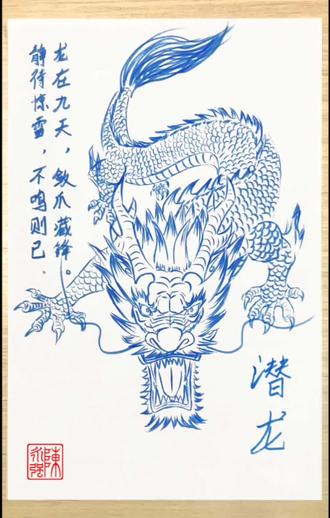 龙在九天，敛爪藏锋。
静待惊雷，不鸣则已.
潜龙
陳
永强